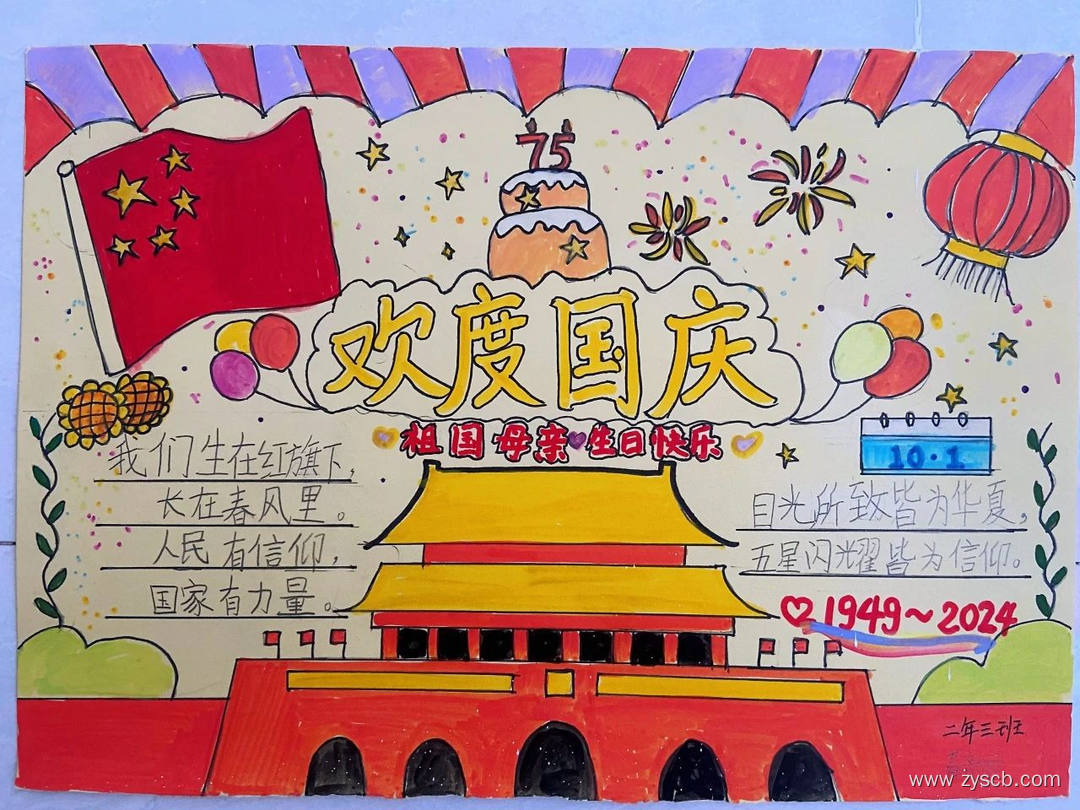 75
欢度国庆
祖国母亲 生日快乐
10·1
我们生在红旗下，
长在春风里。
人民有信仰，
国家有力量。
目光所致皆为华夏，
五星闪光耀皆为信仰。
1949～2024
二年三班
www.zyscb.com